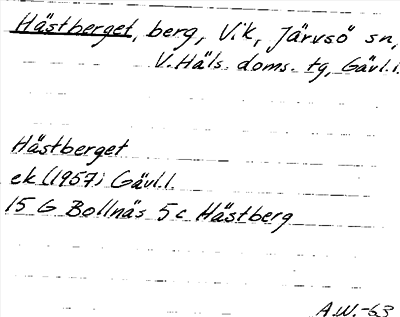 Hästberget, berg, Vik, Järvsö sn,
V. Häls. doms. tg, Gävl.l.
Hästberget
ek (1957) Gävl.l.
15 G Bollnäs 5c Hästberg
A.W.-63